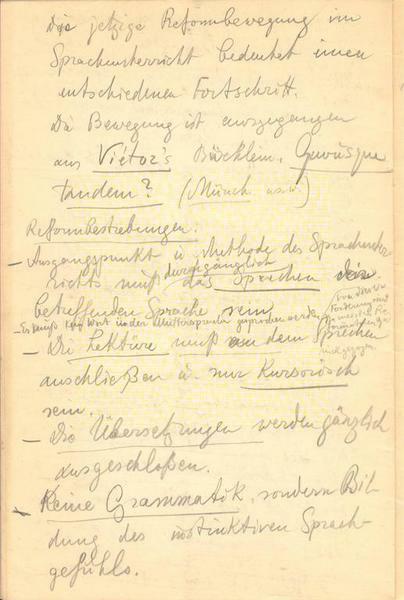 Die jetzige Reformbewegung im
Sprachunterricht bedeutet einen
entschiedenen Fortschritt.
Die Bewegung ist ausgegangen
aus Viëtor's Büchlein. Quousque
tandem? (Münch usw)
Reformbestrebungen:
– Ausgangspunkt u. Methode des Sprachunter-
durchgänglich
richts muß das Sprechen der
betreffenden Sprache sein
– Es muß kein Wort in der Muttersprache gesprochen werden
– Die Lektüre muß an dem Sprechen
anschließen u. nur Kursorisch
sein.
– Die Übersetzungen werden gänzlich
ausgeschloßen.
– Keine Grammatik, sondern Bil-
dung des instinktiven Sprach-
gefühls.